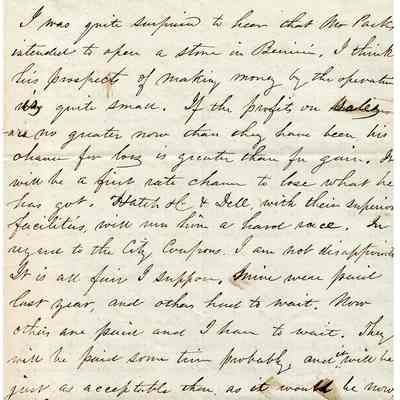 I was quite surprised to hear that Mr Park
intended to open a store in Benicia. I think
his prospect of making money by the operation
is quite small. If the profits on sales
are no greater now than they have been his
chance for loss is greater than for gain. It
will be a first rate chance to lose what he
has got. Hatch & Dell, with their superior
facilities, will run him a hard race. In
regard to the City Coupons. I am not disappointed
It is all fair I suppose. Mine were paid
last year, and others had to wait. Now
others are paid and I have to wait. They
will be paid some time probably, and it will be
just as acceptable then, as it would be now